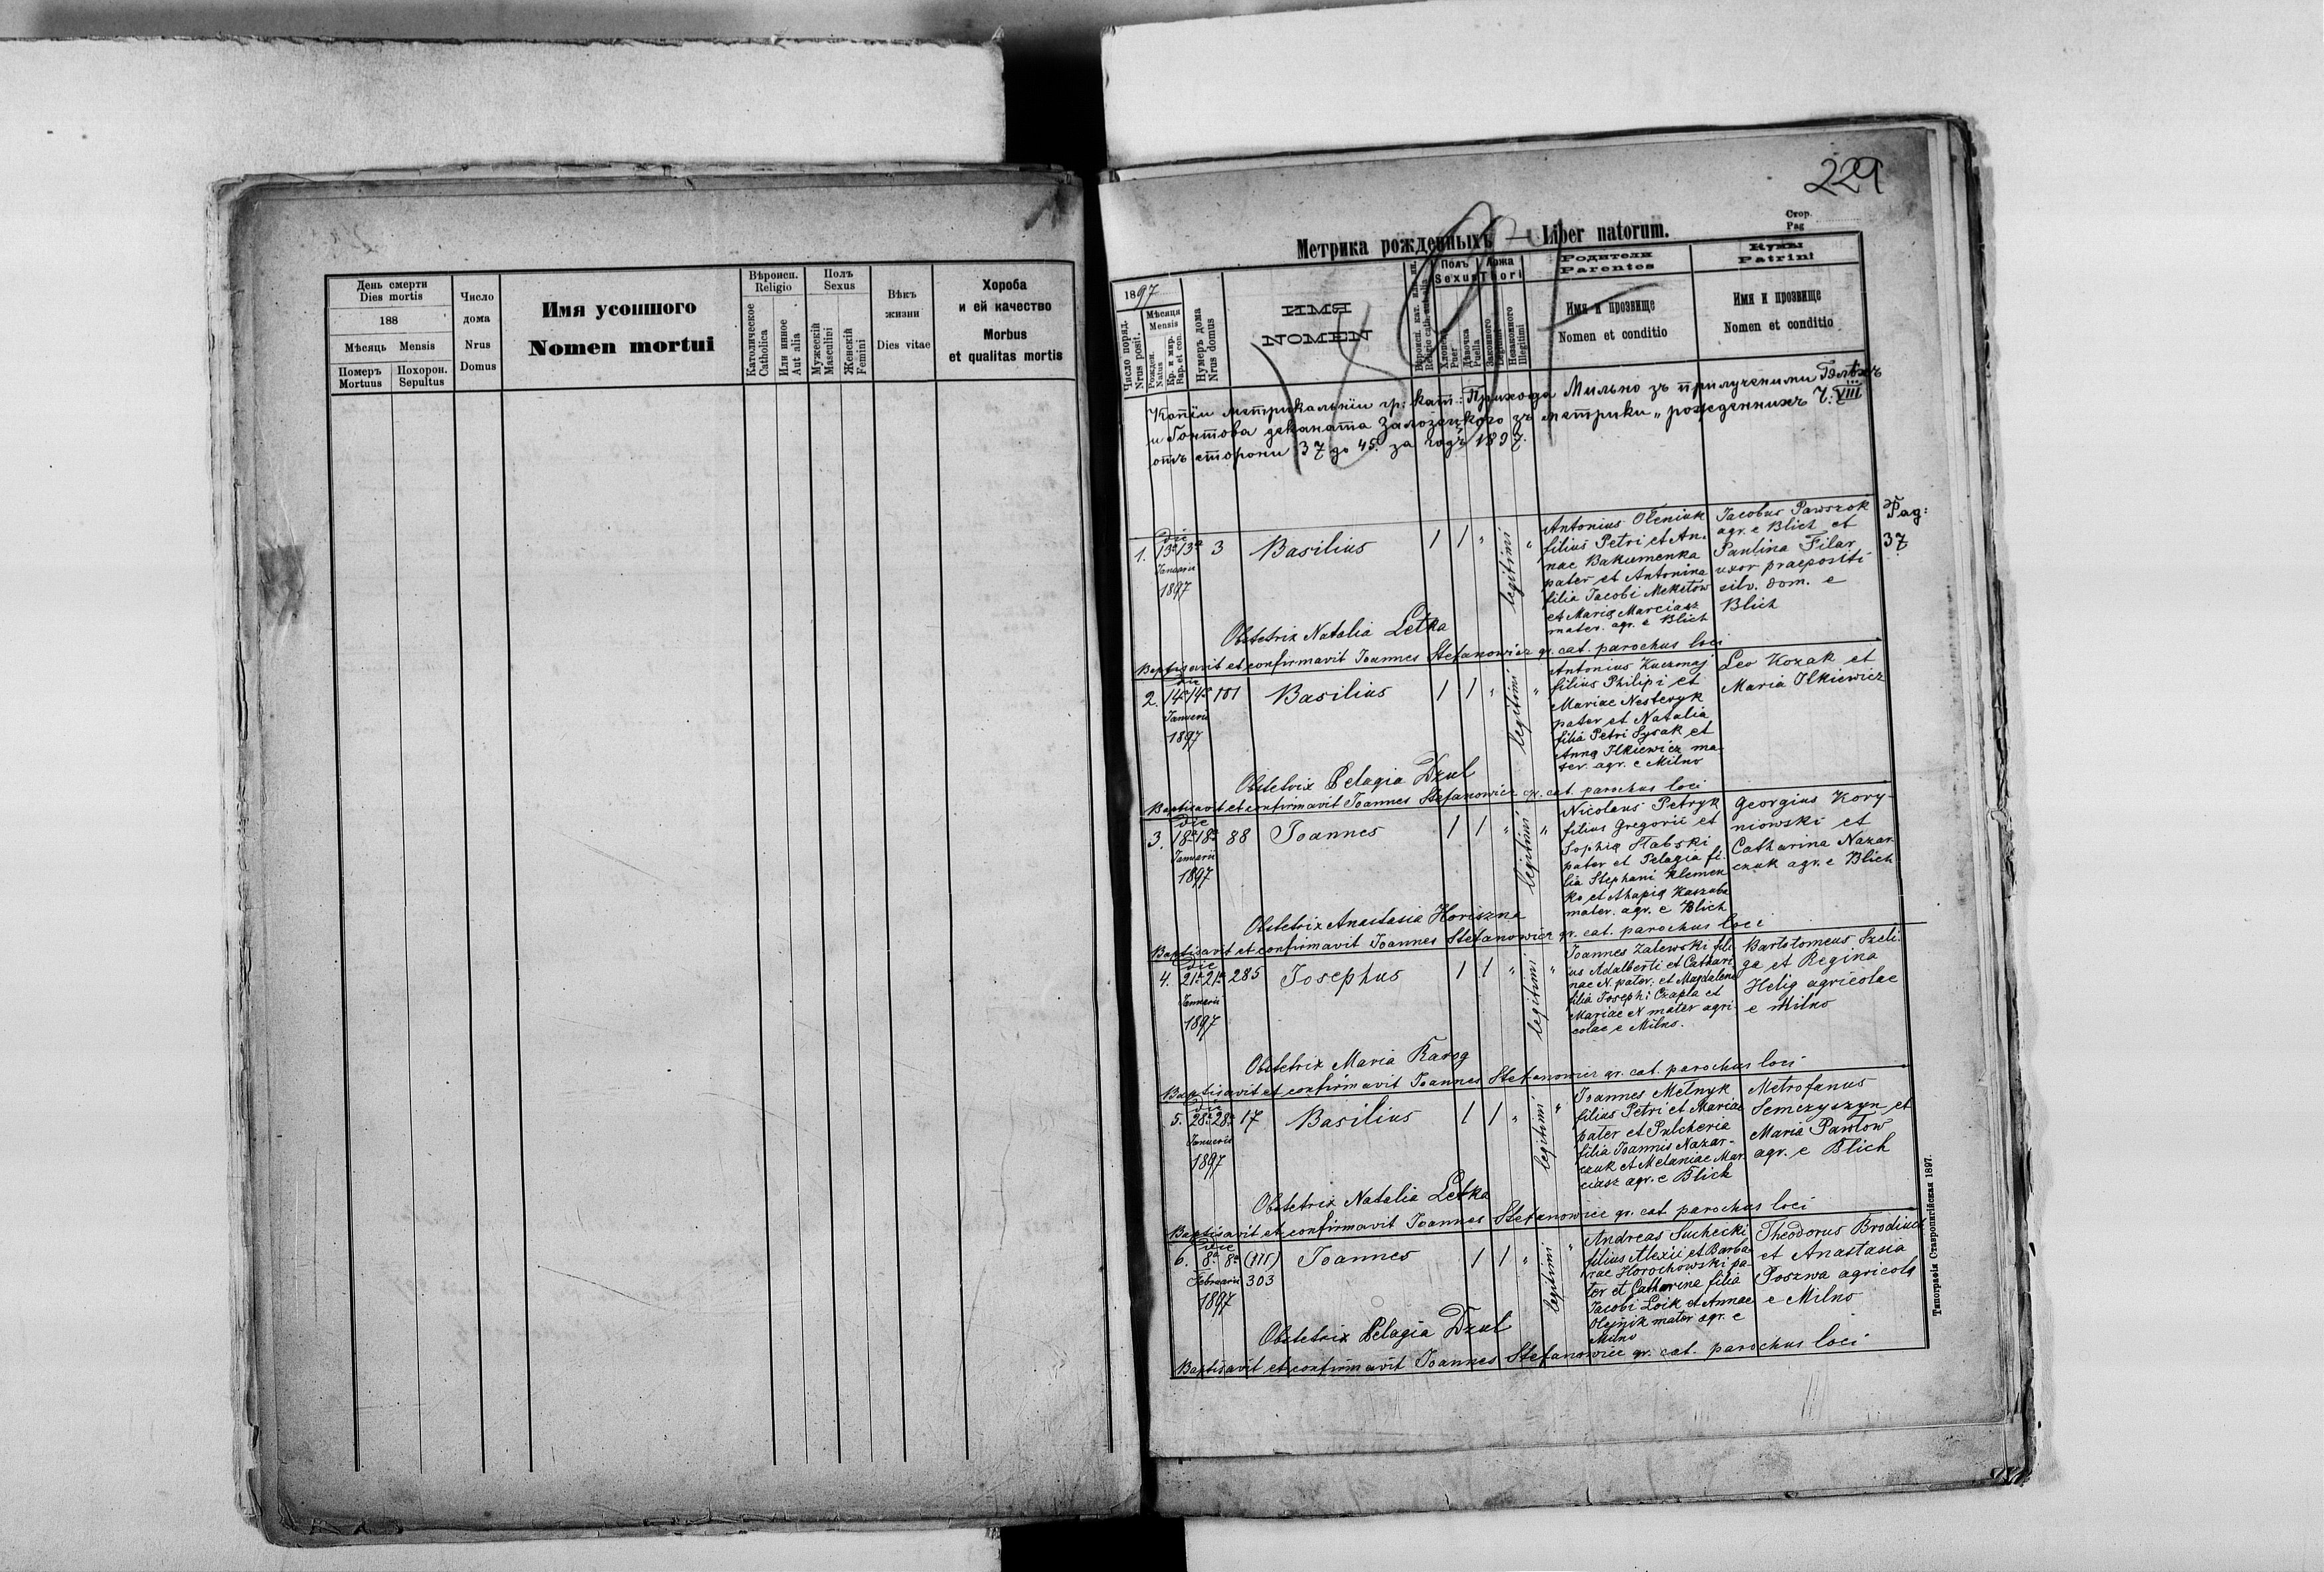 День смерти
Dies mortis
188
Мѣсяць Mensis
Померъ
Mortuus
Похорон.
Sepultus
Число
дома
Nrus
Domus
Имя усопшого
Nomen mortui
Вѣроисп.
Religio
Католическое
Catholica
Или инное
Aut alia
Полъ
Sexus
Мужескій
Masculini
Женскій
Femini
Вѣкъ
жизни
Dies vitae
Хороба
и ей качество
Morbus
et qualitas mortis
229
Стор.
Pag
Метрика рожденныхъ — Liber natorum.
1897
Число поряд.
Nrus posit.
Мѣсяця
Mensis
Рожден.
Natus
Кр. и мир.
Bap. et con.
Нумеръ дома
Nrus domus
ИМЯ
NOMEN
Полъ
Sexus
Хлопець
Puer
Дѣвочка
Puella
Ложа
Thori
Законного
Legitimi
Незаконного
Illegitimi
Родители
Parentes
Имя и прозвище
Nomen et conditio
Кумы
Patrini
Имя и прозвище
Nomen et conditio
Копіи метрикальніи гр: кат: Прихода Мильно зъ прилученими Блѣхъ
и Гонтова деканата Залозецкого зъ метрики „рожденнихъ Ч: VIII
отъ сторони 37 до 45. за годъ 1897.
Pag:
37
1. die 13a 13a Januarii 1897 3 Basilius 1 1 " legitimi "
Antonius Oleniuk
filius Petri et An.
nae Bakumenka
pater et Antonina
filia Jacobi Meketow
et Maria Marciasz
mater. agr. e Blich
Jacobus Pawszok
agr. e Blich et
Paulina Filar
uxor praepositi
silv. dom. e
Blich
Obstetrix Natalia Letka
Baptisavit et confirmavit Joannes Stefanowicz gr. cat. parochus loci
2. die 14a 14a Januarii 1897 101 Basilius 1 1 " legitimi "
Antonius Kuczmaj
filius Philipi et
Mariae Nesteryk
pater et Natalia
filia Petri Sysak et
Anna Ilkiewicz ma-
ter. agr. e Milno
Leo Kozak et
Maria Ilkiewicz
Obstetrix Pelagia Dzul
Baptisavit et confirmavit Joannes Stefanowicz gr. cat. parochus loci
3. die 18a 18a Januarii 1897 88 Joannes 1 1 " legitimi "
Nicolaus Petryk
filius Gregorii et
Sophia Habski
pater et Pelagia fi-
lia Stephani Klemen
ko et Ahapia Kaszuba
mater. agr. e Blich
Georgius Kory-
niowski et
Catharina Nazar-
czuk agr. e Blich
Obstetrix Anastasia Horiszna
Baptisavit et confirmavit Joannes Stefanowicz gr. cat. parochus loci
4. die 21a 21a Januarii 1897 285 Josephus 1 1 " legitimi "
Joannes Zalewski fili-
us Adalberti et Cathari
nae N. pater. et Magdalena
filia Josephi Czapla et
Mariae N mater agri-
colae e Milno.
Bartolomeus Szeli-
ga et Regina
Helig agricolae
e Milno
Obstetrix Maria Karog
Baptisavit et confirmavit Joannes Stefanowicz gr. cat. parochus loci
5. die 28a 28a Januarii 1897 17 Basilius 1 1 " legitimi "
Joannes Melnyk
filius Petri et Mariae
pater et Pulcheria
filia Joannis Nazar-
czuk et Melaniae Mar-
ciasz agr. e Blich
Metrofanus
Semczyszyn et
Maria Pawlow
agr. e Blich
Obstetrix Natalia Letka
Baptisavit et confirmavit Joannes Stefanowicz gr. cat. parochus loci
6. die 8a 8a Februarii 1897 (III) 303 Joannes 1 1 " legitimi "
Andreas Suchecki
filius Alexii et Barba-
rae Horochowski pa-
ter et Catharina filia
Jacobi Loik et Annae
Olejnik mater agr. e
Milno
Theodorus Brodiuch
et Anastasia
Poszwa agricola
e Milno
Obstetrix Pelagia Dzul
Baptisavit et confirmavit Joannes Stefanowicz gr. cat. parochus loci
Типографія Ставропигійская 1897.